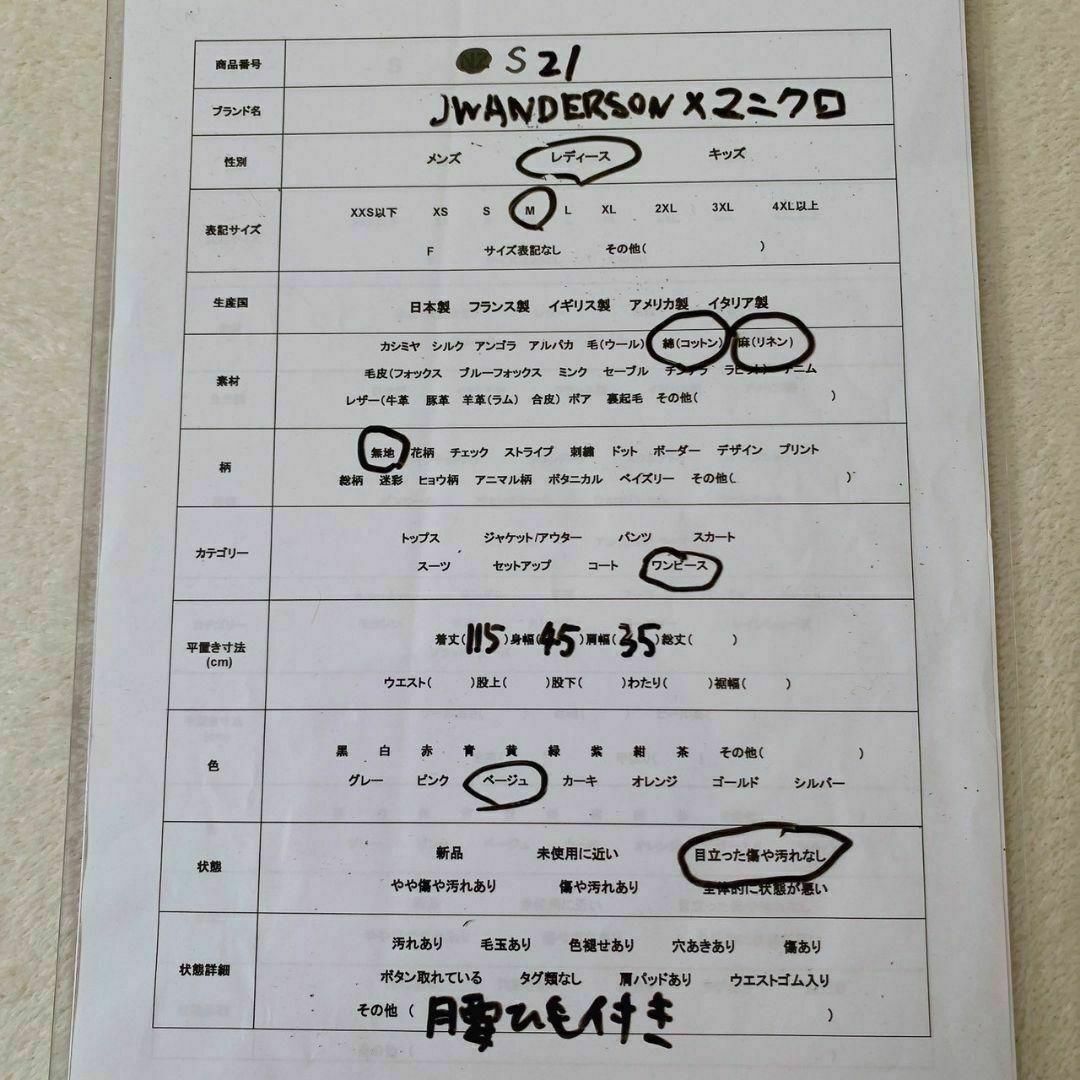 商品番号 S21
ブランド名 JWANDERSON×ユニクロ
性別 メンズ レディース キッズ
表記サイズ XXS以下 XS S M L XL 2XL 3XL 4XL以上
F サイズ表記なし その他( )
生産国 日本製 フランス製 イギリス製 アメリカ製 イタリア製
素材 カシミヤ シルク アンゴラ アルパカ 毛(ウール) 綿(コットン) 麻(リネン)
毛皮(フォックス ブルーフォックス ミンク セーブル チンチラ ラビット) デニム
レザー(牛革 豚革 羊革(ラム) 合皮) ボア 裏起毛 その他( )
柄 無地 花柄 チェック ストライプ 刺繍 ドット ボーダー デザイン プリント
総柄 迷彩 ヒョウ柄 アニマル柄 ボタニカル ペイズリー その他( )
カテゴリー トップス ジャケット/アウター パンツ スカート
スーツ セットアップ コート ワンピース
平置き寸法(cm) 着丈(115)身幅(45)肩幅(35)総丈( )
ウエスト( )股上( )股下( )わたり( )裾幅( )
色 黒 白 赤 青 黄 緑 紫 紺 茶 その他( )
グレー ピンク ベージュ カーキ オレンジ ゴールド シルバー
状態 新品 未使用に近い 目立った傷や汚れなし
やや傷や汚れあり 傷や汚れあり 全体的に状態が悪い
状態詳細 汚れあり 毛玉あり 色褪せあり 穴あきあり 傷あり
ボタン取れている タグ類なし 肩パッドあり ウエストゴム入り
その他 ( 腰ひも付き )